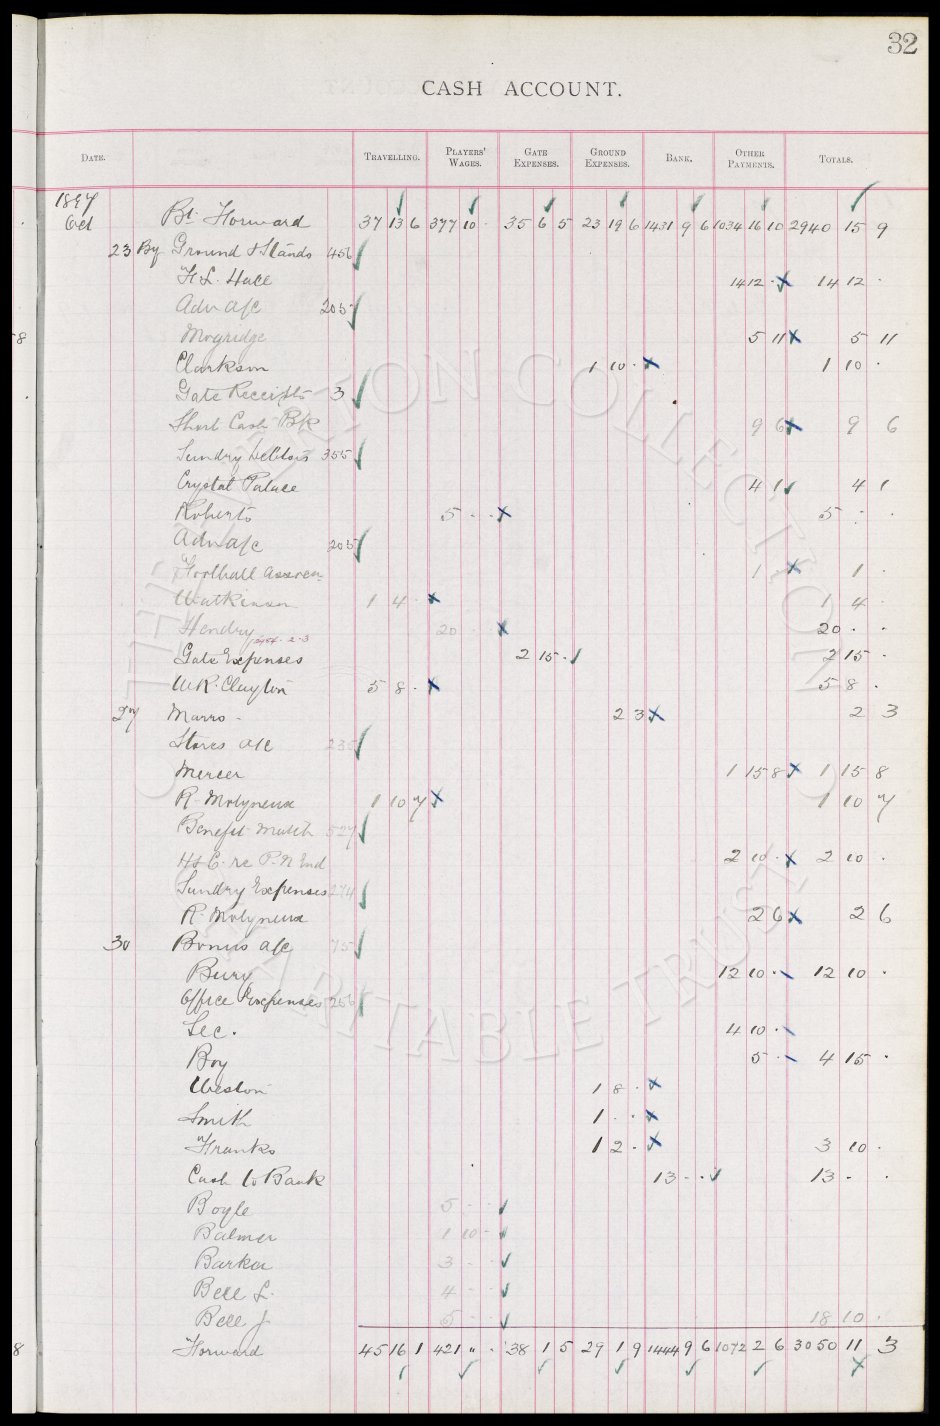 32
CASH ACCOUNT.
DATE. TRAVELLING. PLAYERS' WAGES. GATE EXPENSES. GROUND EXPENSES. BANK. OTHER PAYMENTS. TOTALS.
1897
Oct Bt. Forward 37 13 6 377 10 · 35 6 5 23 19 6 1431 9 6 1034 16 10 2940 15 9
23 By Ground & Stands 456
14 12 · 14 12 ·
Adv a/c 205
Mogridge 5 11 5 11
Clarkson 1 10 · 1 10 ·
Gate Receipts 3
Short Cash Bk 9 6 9 6
Sundry Debtors 355
Crystal Palace 4 1 4 1
Roberts 5 · · 5 · ·
Adv a/c 205
Football Assocn 1 · 1 ·
Watkinson 1 4 · 1 4 ·
Hendry 20 · 20 · ·
Gate Expenses 2 15 · 2 15 ·
W.R. Clayton 5 8 · 5 8 ·
27 Marrs - 2 3 2 3
Stores a/c 235
Mercer 1 15 8 1 15 8
R. Molyneux 1 10 7 1 10 7
Benefit Match 527
H & C. re P.N End 2 10 · 2 10 ·
Sundry Expenses 274
R. Molyneux 2 6 2 6
30 Bonus a/c 75
Bury 12 10 · 12 10 ·
Office Expenses 256
Sec. 4 10 ·
Boy 5 · 4 15 ·
Weston 1 8 ·
Smith 1 · ·
Franks 1 2 · 3 10 ·
Cash to Bank 13 - - 13 · ·
Boyle 5 · ·
Balmer 1 10 -
Barker 3 - ·
Bell L. 4 - ·
Bell J. 5 · · 18 10 ·
Forward 45 16 1 421 " · 38 1 5 29 1 9 1444 9 6 1072 2 6 3050 11 3